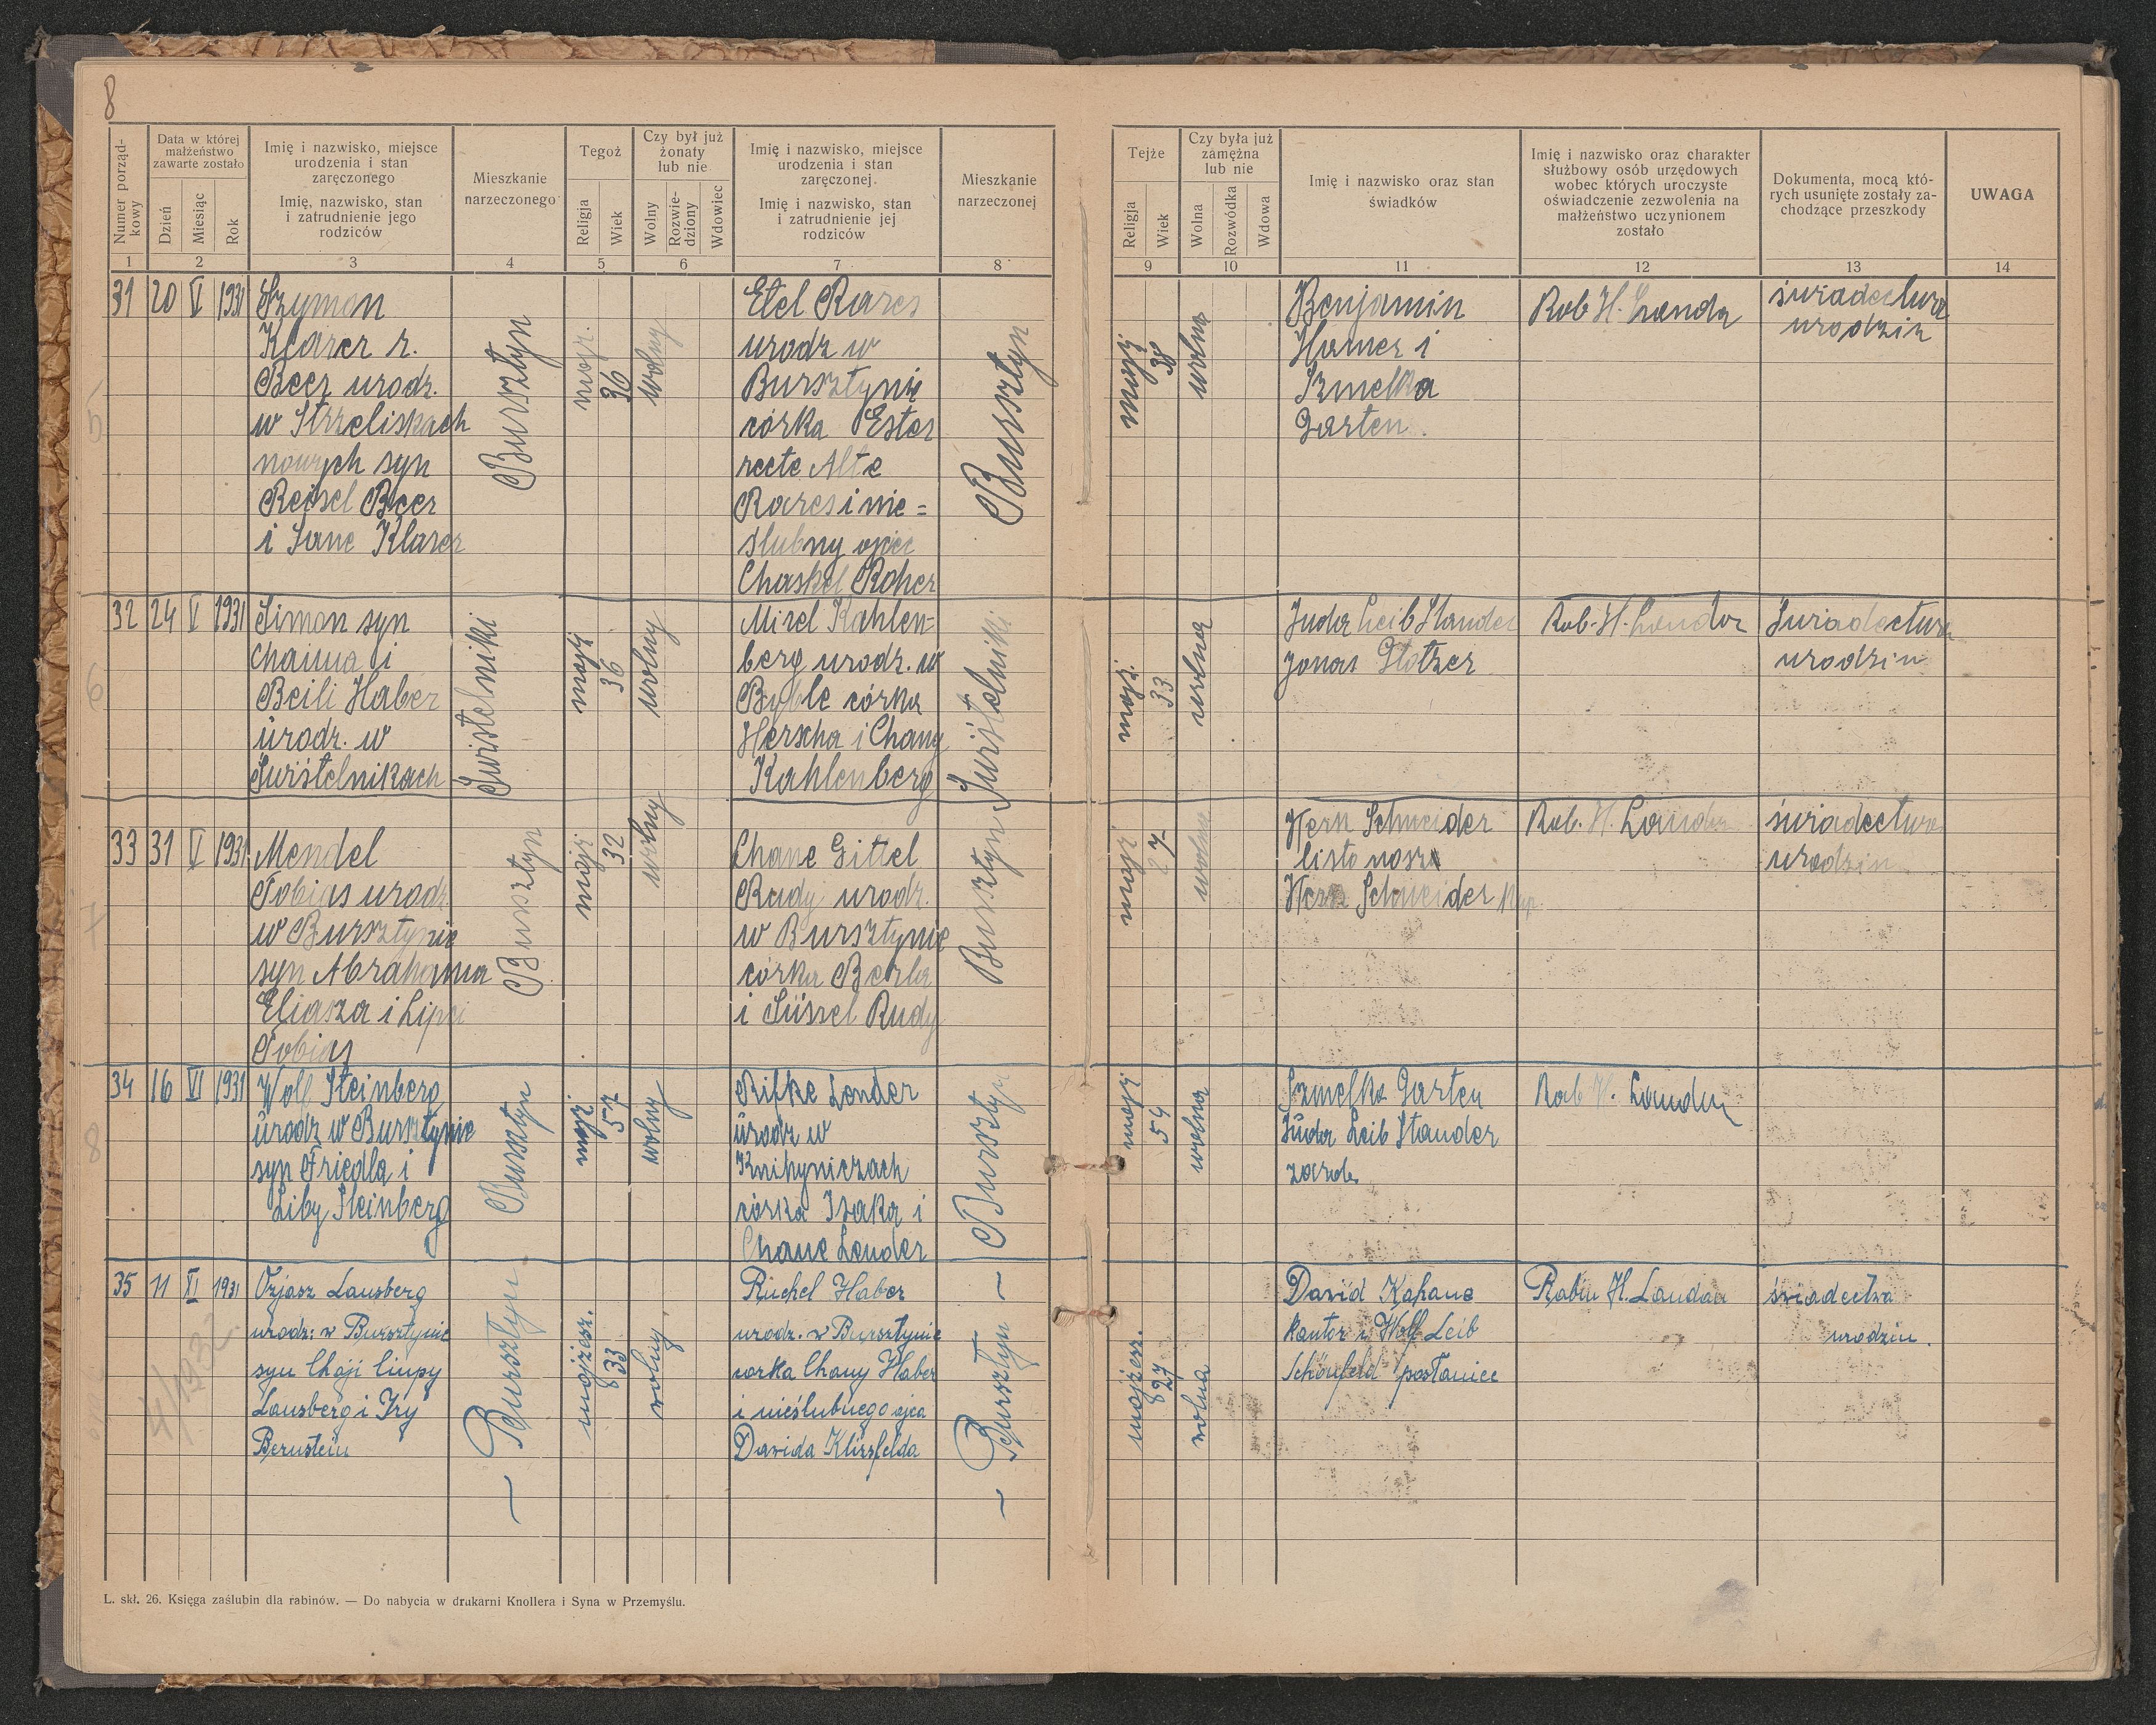 8
Numer porząd-
kowy
Data w której
małżeństwo
zawarte zostało
Dzień
Miesiąc
Rok
Imię i nazwisko, miejsce
urodzenia i stan
zaręczonego
Imię, nazwisko, stan
i zatrudnienie jego
rodziców
Mieszkanie
narzeczonego
Tegoż
Religja
Wiek
Czy był już
żonaty
lub nie
Wolny
Rozwie-
dziony
Wdowiec
Imię i nazwisko, miejsce
urodzenia i stan
zaręczonej.
Imię i nazwisko, stan
i zatrudnienie jej
rodziców
Mieszkanie
narzeczonej
Tejże
Religja
Wiek
Czy była już
zamężna
lub nie
Wolna
Rozwódka
Wdowa
Imię i nazwisko oraz stan
świadków
Imię i nazwisko oraz charakter
służbowy osób urzędowych
wobec których uroczyste
oświadczenie zezwolenia na
małżeństwo uczynionem
zostało
Dokumenta, mocą któ-
rych usunięte zostały za-
chodzące przeszkody
UWAGA
1 2 3 4 5 6 7 8 9 10 11 12 13 14
31 20 V 1931
Szymon
Klarer r.
Beer urodz.
w Strzeliskach
nowych syn
Reisel Beer
i Klarer
Bursztyn
mojż.
36
wolny
Etel Rares
urodz w
Bursztynie
córka Ester
recte Alte
Rares i nie=
ślubny ojciec
Chaskel Roher
Bursztyn
mojż
38
wolna
Benjamin
Hamer i
Szmelka
Garten
Rab H. Landa
świadectwa
urodzin
32 24 V 1931
Simon syn
Chaima i
Beili Haber
urodz. w
Świstelnikach
Świstelniki
mojż
36
wolny
Mirel Kahlen=
berg urodz. w
Byble córka
Herscha i Chany
Kahlenberg
Świstelniki
mojż.
33
wolna
Juda Leib Stander
Jonas Glotzer
Rab. H. Landa
Świadectwa
urodzin
33 31 V 1931
Mendel
Tobias urodz.
w Bursztynie
syn Abrahama
Eliasza i Lipci
Tobias
Bursztyn
mojż
32
wolny
Chane Gittel
Rudy urodz.
w Bursztynie
córka Berla
i Süssel Rudy
Bursztyn
mojż
27
wolna
Hersch Schneider
listonosz
Schneider
Rab. H. Landa
świadectwa
urodzin
34 16 VI 1931
Wolf Steinberg
urodz w Bursztynie
syn Friedla i
Liby Steinberg
Bursztyn
mojż
57
wolny
Rifke Lender
urodz w
Knihyniczach
córka Izaka i
Chane Lender
Bursztyn
mojż
54
wolna
Szmelka Garten
Juda Leib Stander
zarob.
Rab H. Landau
35 11 XI 1931
Ozjasz Lausberg
urodz: w Bursztynie
syn
Lausberg i Izy
Bernstein
— Bursztyn
mojżesz.
33
wolny
Ruchel Haber
urodz. w Bursztynie
córka Chany Haber
i nieślubnego ojca
Dawida
— Bursztyn —
mojżesz.
27
wolna
Dawid Kahane
kantor i Wolf Leib
Schönfeld posłaniec
Rabin H. Landau
świadectwa
urodzin.
5
6
7
8
4/1932
L. skł. 26. Księga zaślubin dla rabinów. — Do nabycia w drukarni Knollera i Syna w Przemyślu.